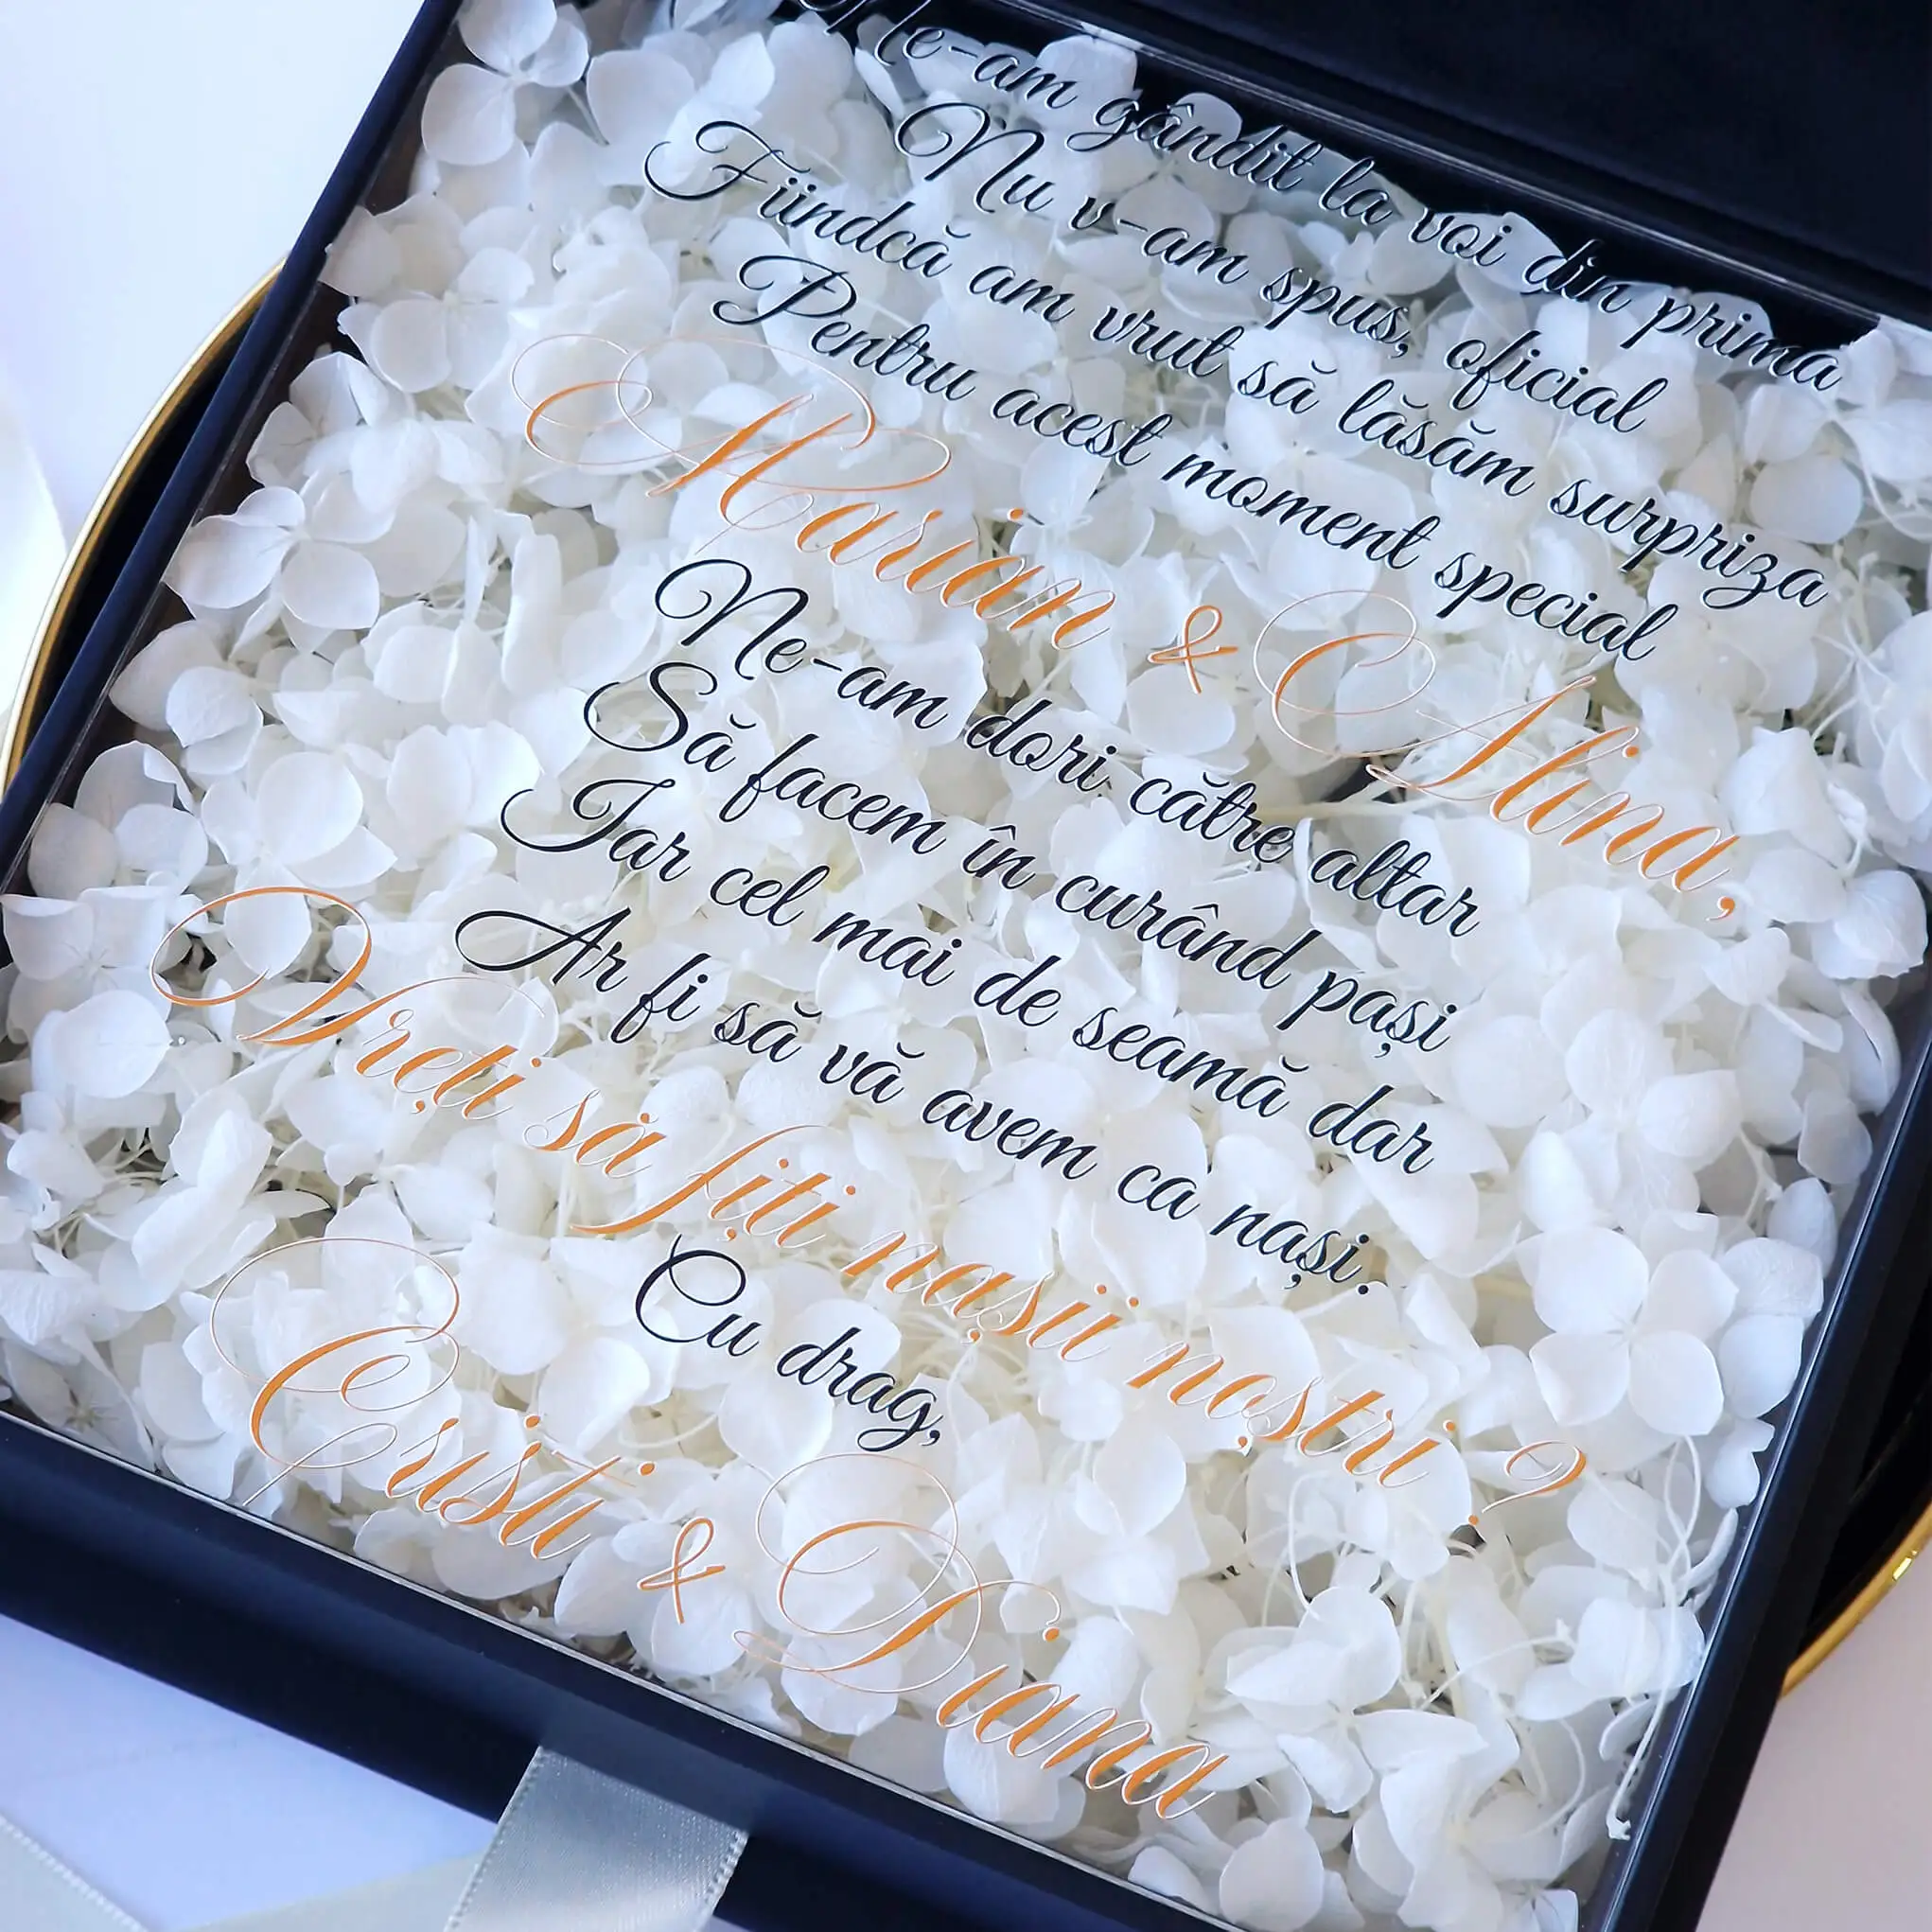 Ne-am gândit la voi din prima
Nu v-am spus, oficial
Fiindcă am vrut să lăsăm surpriza
Pentru acest moment special
Marian & Alina,
Ne-am dori către altar
Să facem în curând pași
Iar cel mai de seamă dar
Ar fi să vă avem ca nași.
Vreți să fiți nașii noștri ?
Cu drag,
Cristi & Diana